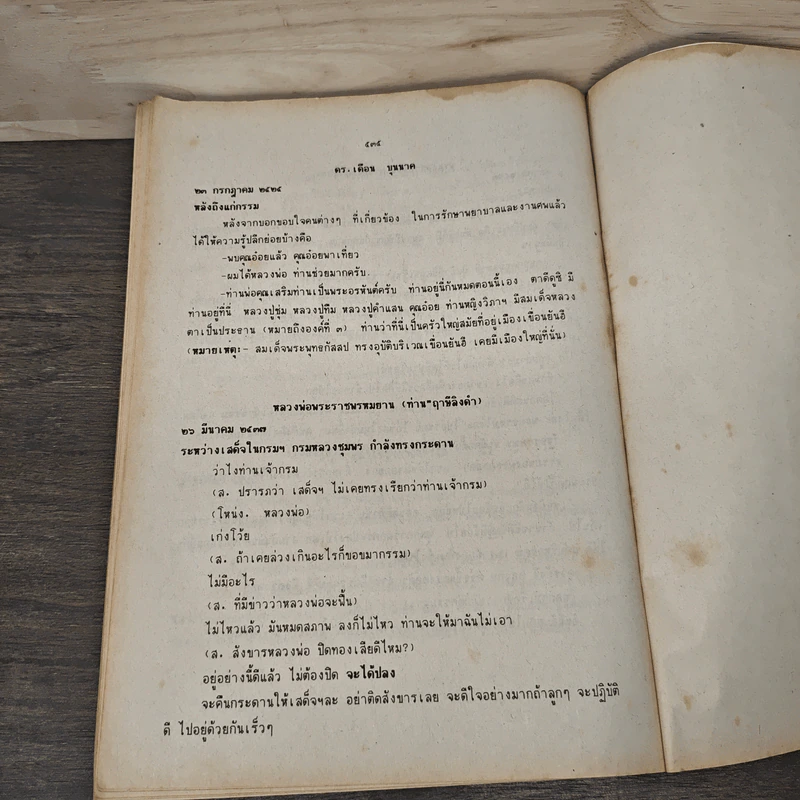 ๕๓๕
ดร.เดือน บุนนาค
๒๓ กรกฎาคม ๒๕๒๕
หลังถึงแก่กรรม
หลังจากบอกขอบใจคนต่างๆ ที่เกี่ยวข้อง ในการรักษาพยาบาลและงานศพแล้ว
ได้ให้ความรู้ปลีกย่อยบ้างคือ
-พบคุณอ๋อยแล้ว คุณอ๋อยพาเที่ยว
-ผมได้หลวงพ่อ ท่านช่วยมากครับ.
-ท่านพ่อคุณเสริมท่านเป็นพระอรหันต์ครับ ท่านอยู่นี่กันหมดตอนนี้เอง ตาดีดูซิ มี
ท่านอยู่ที่นี่ หลวงปู่ชุ่ม หลวงปู่ทืม หลวงปู่คำแสน คุณอ๋อย ท่านหญิงวิภาฯ มีสมเด็จหลวง
ตาเป็นประธาน (หมายถึงองค์ที่ ๓) ท่านว่าที่นี่เป็นครัวใหญ่สมัยที่อยู่เมืองเขื่อนยันฮี
(หมายเหตุ:- สมเด็จพระพุทธกัสสป ทรงอุบัติบริเวณเขื่อนยันฮี เคยมีเมืองใหญ่ที่นั่น)
หลวงพ่อพระราชพรหมยาน (ท่าน"ฤาษีลิงดำ)
๒๖ มีนาคม ๒๕๓๗
ระหว่างเสด็จในกรมฯ กรมหลวงชุมพร กำลังทรงกระดาน
ว่าไงท่านเจ้ากรม
(ส. ปรารภว่า เสด็จฯ ไม่เคยทรงเรียกว่าท่านเจ้ากรม)
(โหน่ง. หลวงพ่อ)
เก่งโว้ย
(ส. ถ้าเคยล่วงเกินอะไรก็ขอขมากรรม)
ไม่มีอะไร
(ส. ที่มีข่าวว่าหลวงพ่อจะฟื้น)
ไม่ไหวแล้ว มันหมดสภาพ ลงก็ไม่ไหว ท่านจะให้มาฉันไม่เอา
(ส. สังขารหลวงพ่อ ปิดทองเสียดีไหม?)
อยู่อย่างนี้ดีแล้ว ไม่ต้องปิด จะได้ปลง
จะคืนกระดานให้เสด็จฯละ อย่าติดสังขารเลย จะดีใจอย่างมากถ้าลูกๆ จะปฏิบัติ
ดี ไปอยู่ด้วยกันเร็วๆ